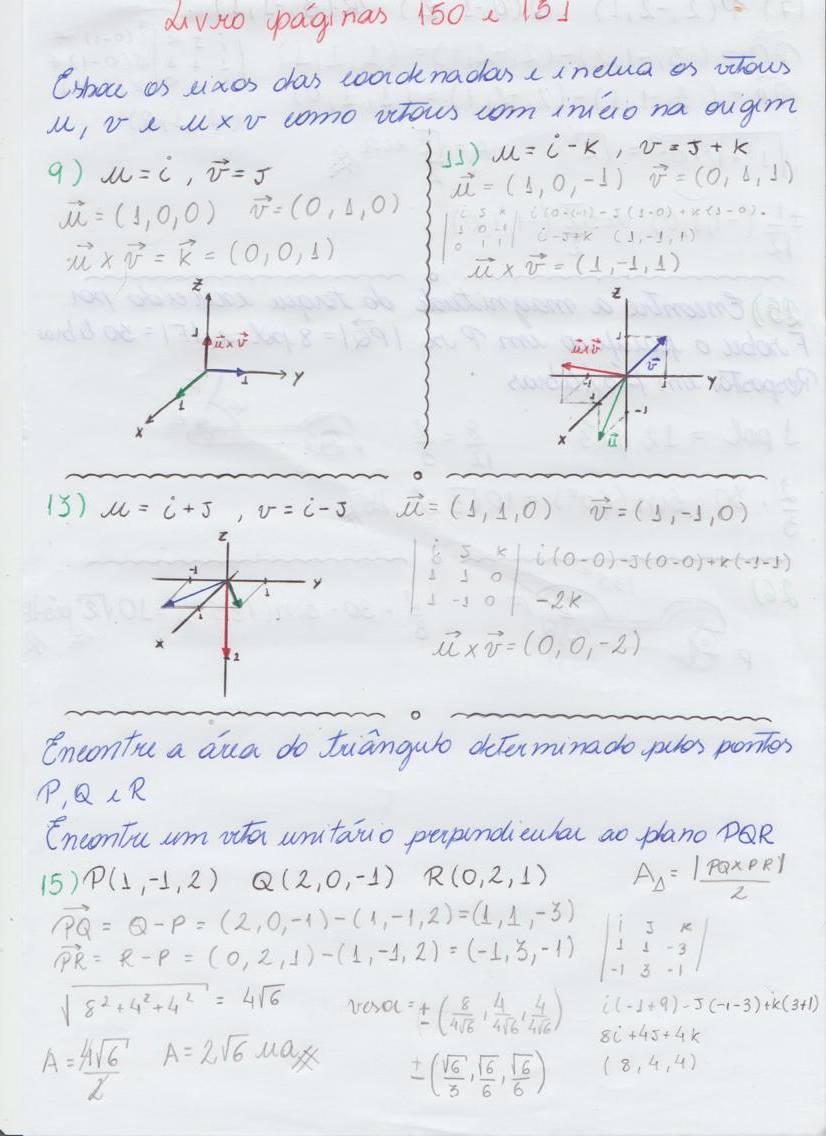 Livro páginas 150 e 151
Esboce os eixos das coordenadas e inclua os vetores
u, v e u x v como vetores com início na origem
9) u = i , v⃗ = J
u⃗ = (1,0,0) v⃗ = (0,1,0)
u⃗ x v⃗ = k⃗ = (0,0,1)
Z
1
u⃗ x v⃗
1
Y
1
X
11) u = i - k , v = J + k
u⃗ = (1,0,-1) v⃗ = (0,1,1)
| i J k | i(0-(-1)) - J(1-0) + k(1-0).
| 1 0 -1 | i - J + k (1,-1,1)
| 0 1 1 |
u⃗ x v⃗ = (1,-1,1)
Z
1
u⃗ x v⃗
v⃗
Y
-1
1
1
-1
X
u⃗
13) u = i + J , v = i - J u⃗ = (1,1,0) v⃗ = (1,-1,0)
| i J k | i(0-0) - J(0-0) + k(-1-1)
| 1 1 0 |
| 1 -1 0 | -2k
u⃗ x v⃗ = (0,0,-2)
Z
-1
Y
1
1
X
2
Encontre a área do triângulo determinado pelos pontos
P, Q e R
Encontre um vetor unitário perpendicular ao plano PQR
15) P(1,-1,2) Q(2,0,-1) R(0,2,1) A△ = |PQ x PR| / 2
PQ⃗ = Q - P = (2,0,-1) - (1,-1,2) = (1,1,-3)
PR⃗ = R - P = (0,2,1) - (1,-1,2) = (-1,3,-1)
| i J k |
| 1 1 -3 |
| -1 3 -1 |
√(8² + 4² + 4²) = 4√6
versor = ± (8/4√6, 4/4√6, 4/4√6)
i(-1+9) - J(-1-3) + k(3+1)
8i + 4J + 4k
A = 4√6 / 2 A = 2√6 ua
± (√6/3, √6/6, √6/6)
(8,4,4)